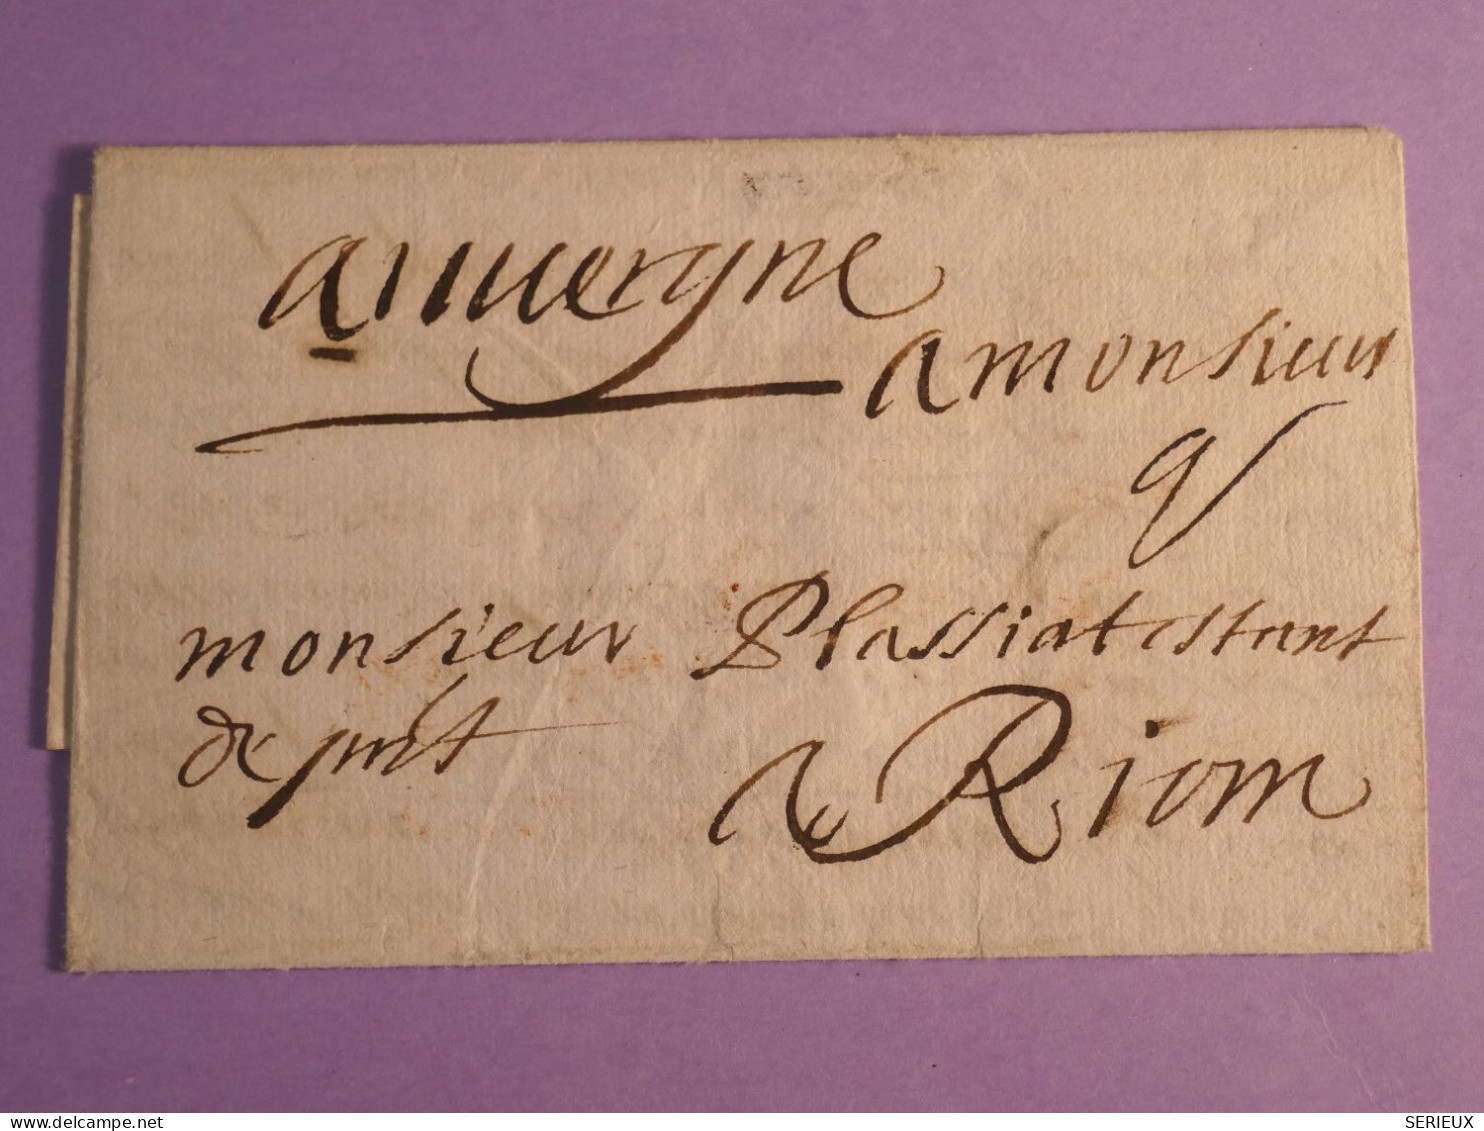 auvergne
a monsieur
monsieur Plassiat estant
de pnt a Riom
delcampe.net
SERIEUX